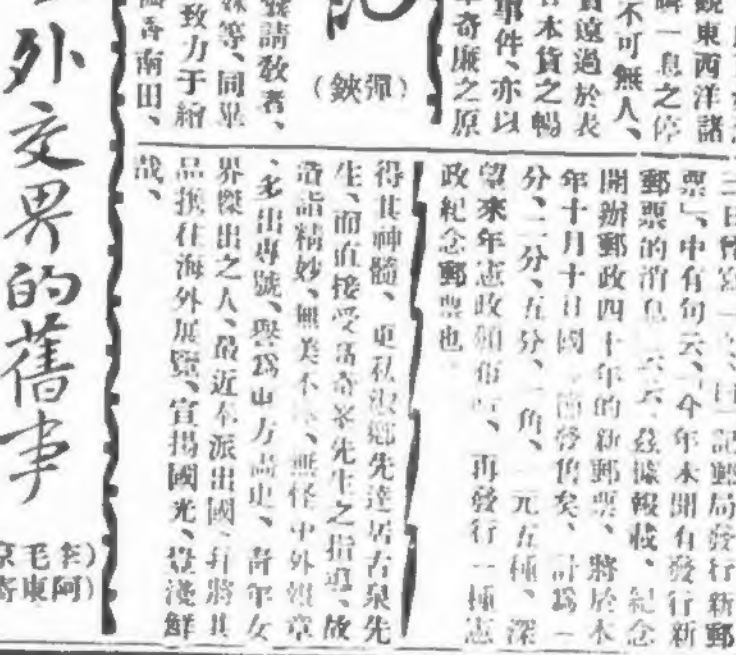 觀東西洋諸
瞬一息之停
不可無人、
貨遠過於表
日本貨之暢
事件、亦以
年奇廉之原
記
（鋏彈）
發請敎者、
妹等、同畢
致力于繪
香南田、
票」、中有句云、「今年未聞有發行新
郵票的消息」云云、茲據報載、紀念
開辦郵政四十年的新郵票、將於本
年十月十日國 發售矣、計爲一
分、二分、五分、一角、一元五種、深
望來年憲政頒佈時、再發行一種憲
政紀念郵票也
得其神髓、更私淑鄉先達居古泉先
生、而直接受高奇峯先生之指導、故
造詣精妙、無美不 、無怪中外報章
、多出專號、譽爲東方畫史、靑年女
界傑出之人、最近奉派出國、幷將其
品携往海外展覽、宣揚國光、豈淺鮮
哉、
外交界的舊事
毛李）
東阿）